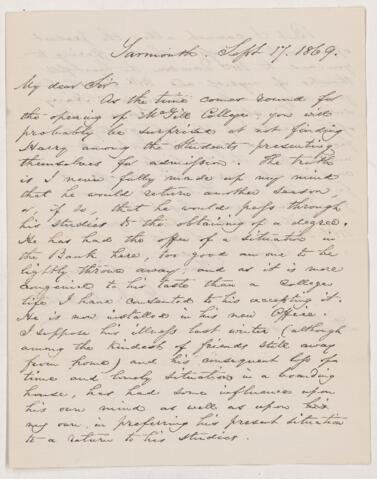 Yarmouth. Sept 17. 1869.
My dear Sir
As the time comes round for
the opening of McGill College, you will
probably be surprised at not finding
Harry among the Students presenting
themselves for admission. The truth
is I never fully made up my mind
that he would return another season,
or, if so, that he would pass through
his studies to the obtaining of a degree.
He has had the offer of a situation in
the Bank here, too good an one to be
lightly thrown away; and as it is more
congenial to his taste than a College
life I have consented to his accepting it.
He is now installed in his new Office.
I suppose his illness last winter (although
among the kindest of friends still away
from home) and his consequent loss of
time and lonely situation in a boarding
house, has had some influence upon
his own mind as well as upon
my own, in preferring his present situation
to a return to his studies.